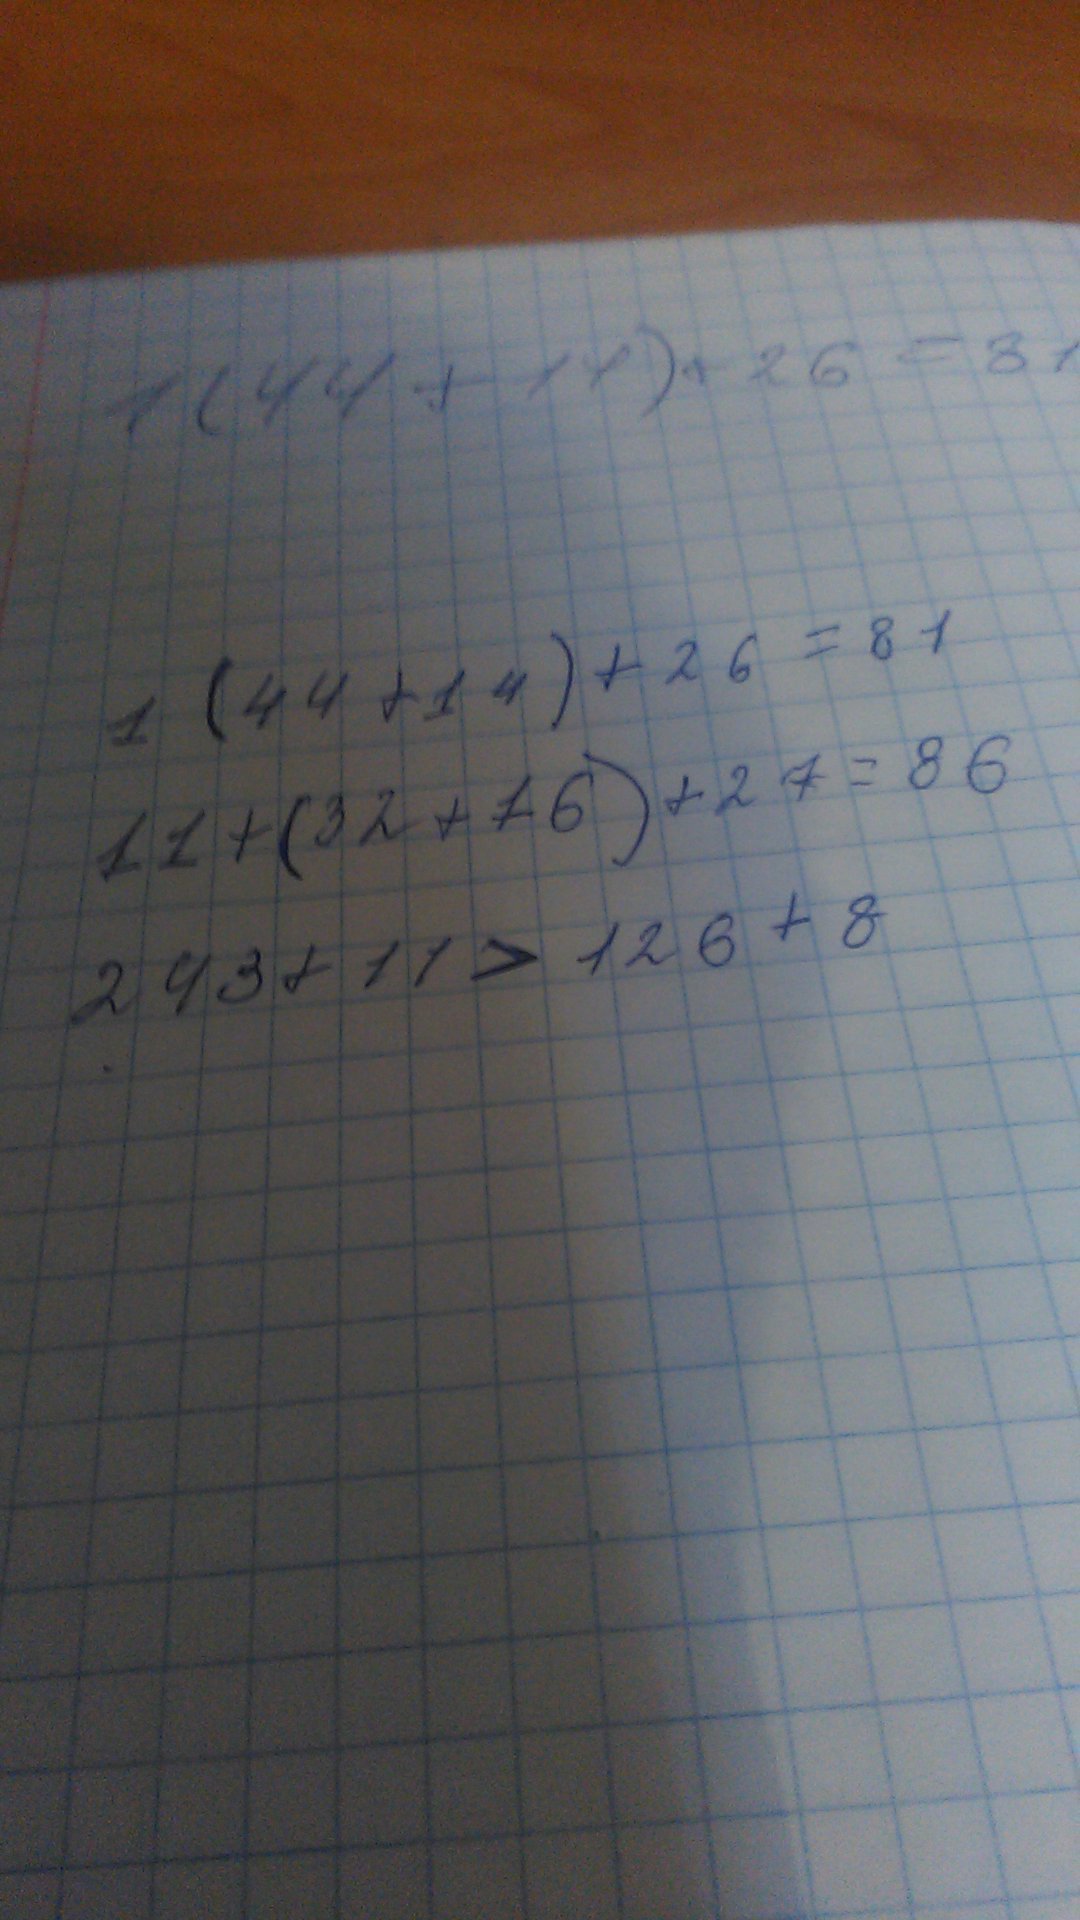 1(44+11)+26=81
1(44+14)+26=81
11+(32+16)+27=86
243+11>126+8